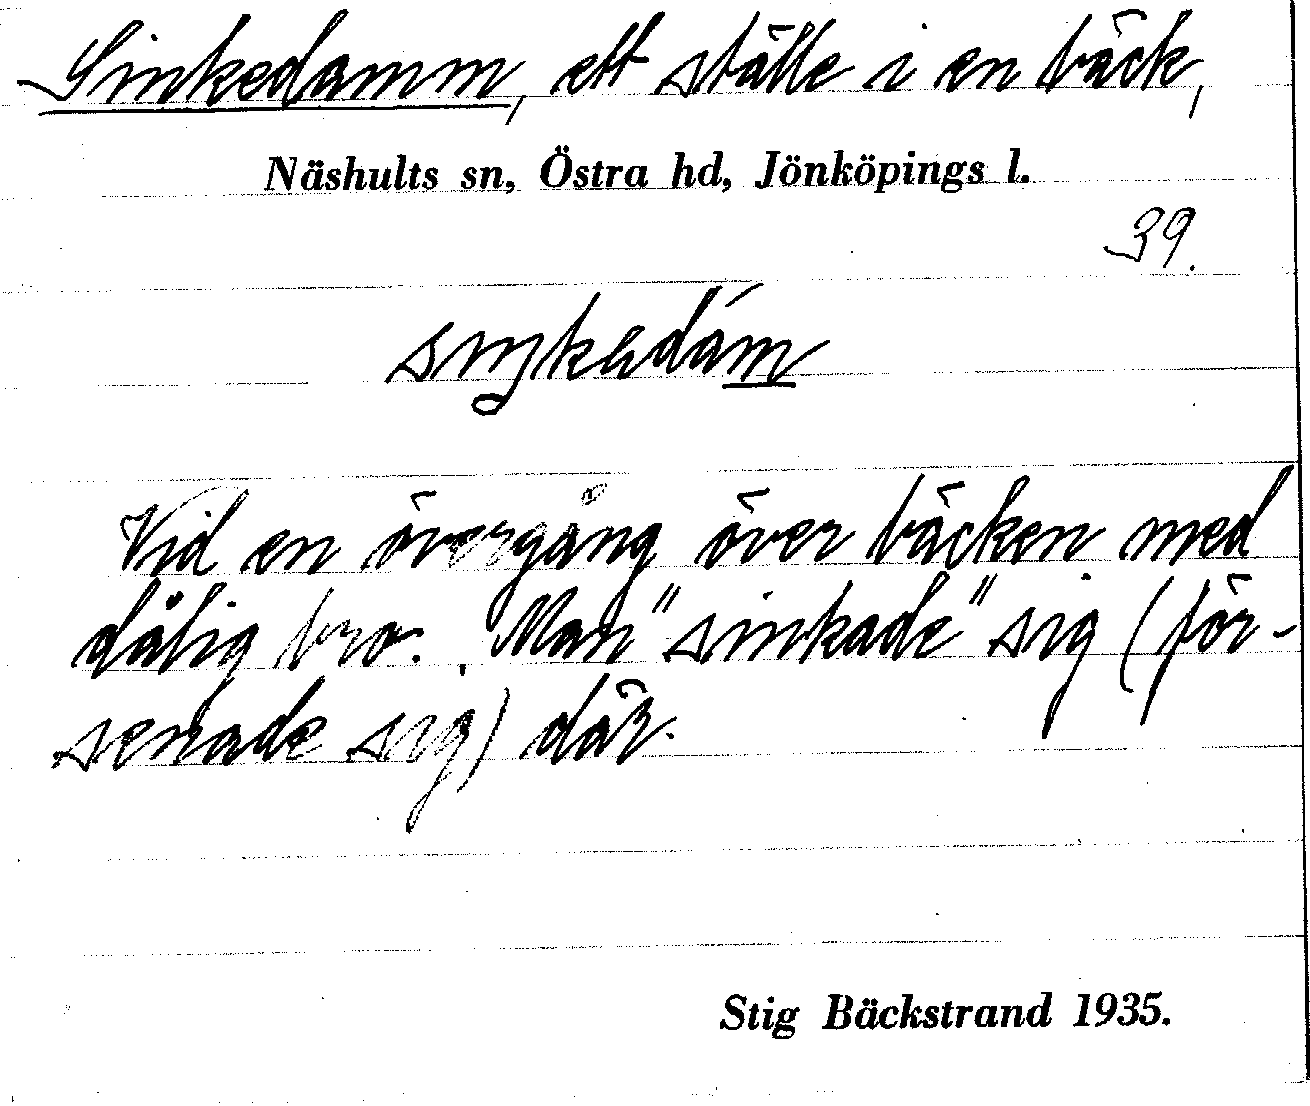 Sinkedamm, ett ställe i en bäck,
Näshults sn, Östra hd, Jönköpings l.
39.
siŋkədám
Vid en övergång över bäcken med
dålig bro. Man "sinkade" sig (för-
senade sig) där.
Stig Bäckstrand 1935.